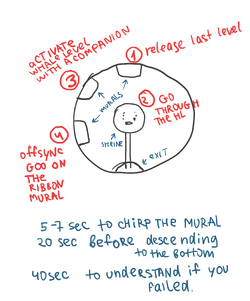 ① release last level
activate
whale level
with a companion
③
murals
② go
through
the HL
④
shrine
exit
offsync
goo on
the
ribbon
mural
5-7 sec to chirp the mural
20 sec before descending
to the bottom
40sec to understand if you
failed.